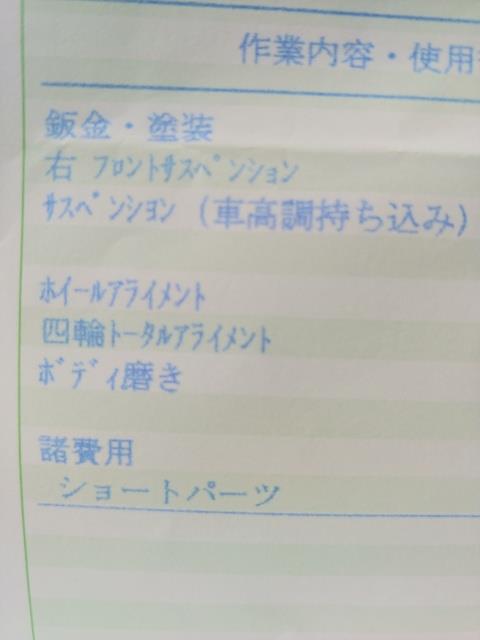 作業内容・使用
鈑金・塗装
右 フロントサスペンション
サスペンション (車高調持ち込み)
ホイールアライメント
四輪トータルアライメント
ボディ磨き
諸費用
ショートパーツ